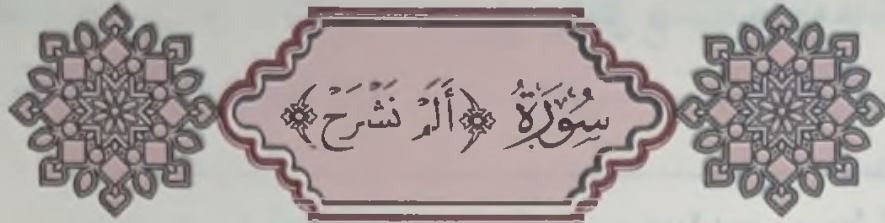 سُورَةُ ﴿أَلَمْ نَشْرَحْ﴾